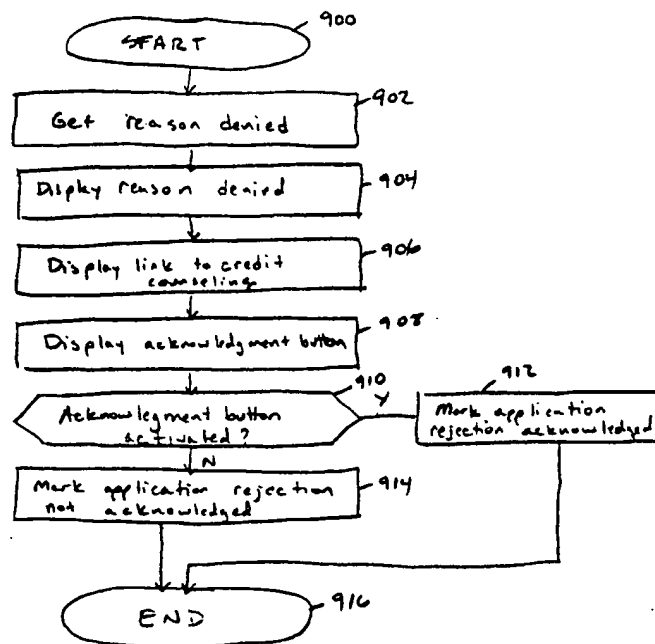 START
900
902
Get reason denied
Display reason denied
904
Display link to credit
counseling
906
Display acknowledgment button
908
910
Acknowlegment button
activated?
Y
912
Mark application
rejection acknowledged
N
Mark application rejection
not acknowledged
914
END
916